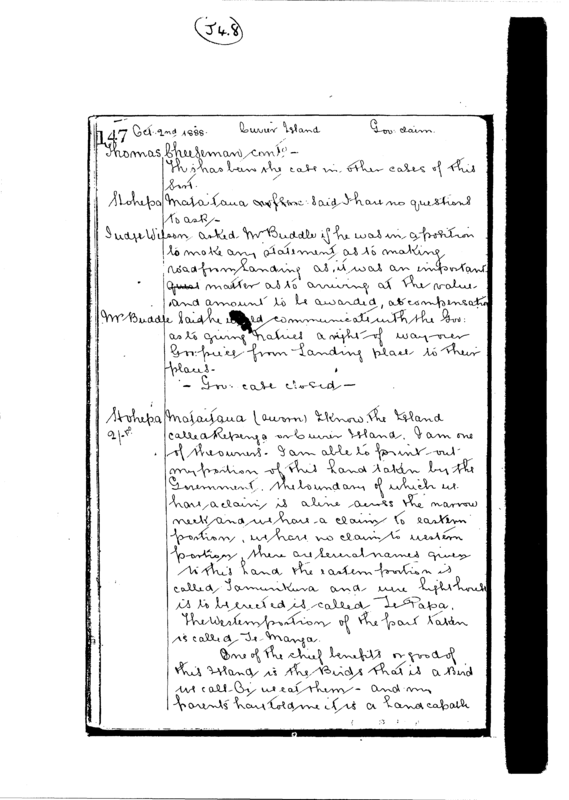 J4.8
147 Oct. 2nd 1888. Cuvier Island Gov. claim.
Thomas Cheeseman contd. -
This has been the case in other cases of this
sort.
Hohepa Mataitaua said I have no questions
to ask -
Judge Wilson asked Mr Buddle if he was in a position
to make any statement as to making
road from Landing as it was an important
matter as to arriving at the value
and amount to be awarded, as compensation
Mr Buddle said he would communicate with the Gov:
as to giving natives a right of way over
Gov: piece from Landing place to their
places -
- Gov: case closed -
Hohepa Mataitaua (sworn) I know the Island
2/- called Repanga or Cuvier Island. I am one
of the owners. I am able to point out
my portion of this land taken by the
Government. the boundary of which we
have a claim is a line across the narrow
neck and we have a claim to eastern
portion, we have no claim to western
portion, there are several names given
to this land the eastern portion is
called and were lighthouse
is to be erected is called Te Papa.
The Western portion of the part taken
is called Te Manga.
One of the chief benefits or good of
this Island is the Birds that is a Bird
we call Oi we eat them - and my
parents have told me it is a land capable